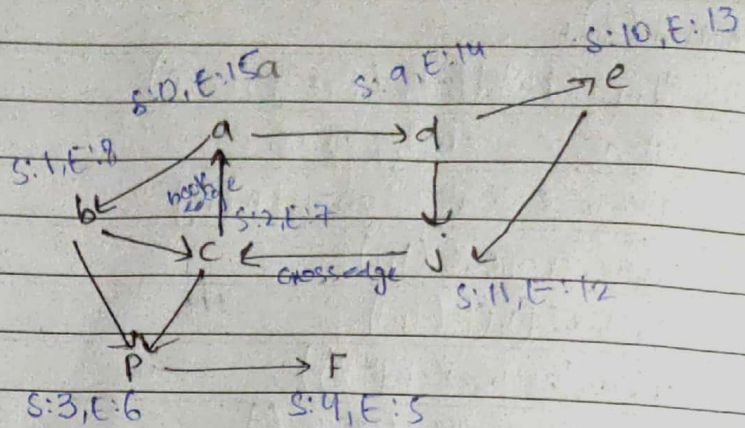 S:10, E:13
S:0, E:15a
S:9, E:14
e
a
d
S:1, E:8
b
back edge
S:2, E:7
c
cross edge
j
S:11, E:12
P
F
S:3, E:6
S:4, E:5